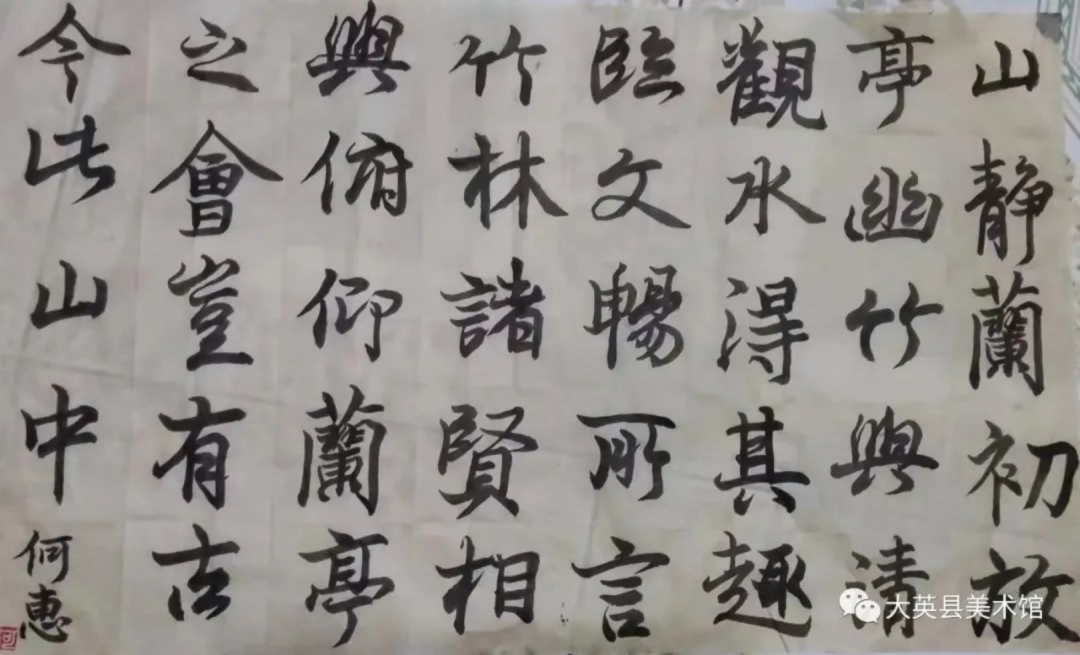 山静蘭初放
亭幽竹興清
觀水得其趣
臨文暢所言
竹林諸賢相
興俯仰蘭亭
之會豈有古
今此山中
何惠
大英县美术馆